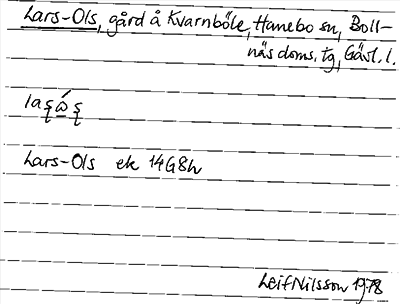 Lars-Ols, gård å Kvarnböle, Hanebo sn, Boll-
näs doms. tg, Gävl. l.
Lars-Ols ek 14G8h
Leif Nilsson 1978